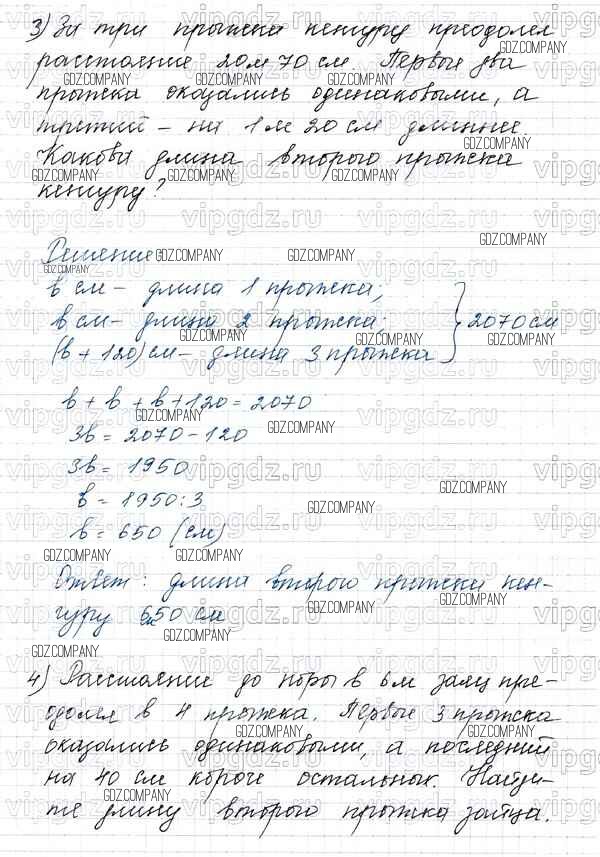 3) За три прыжка кенгуру преодолел
расстояние 20 м 70 см. Первые два
прыжка оказались одинаковыми, а
третий – на 1 м 20 см длиннее.
Какова длина второго прыжка
кенгуру?
Решение
b см – длина 1 прыжка;
b см – длина 2 прыжка;
(b + 120) см – длина 3 прыжка } 2070 см
b + b + b + 120 = 2070
3b = 2070 - 120
3b = 1950
b = 1950 : 3
b = 650 (см)
Ответ: длина второго прыжка кен-
гуру 650 см
4) Расстояние до норы в 6 м заяц пре-
одолел в 4 прыжка. Первые 3 прыжка
оказались одинаковыми, а последний
на 40 см короче остальных. Найди-
те длину второго прыжка зайца.